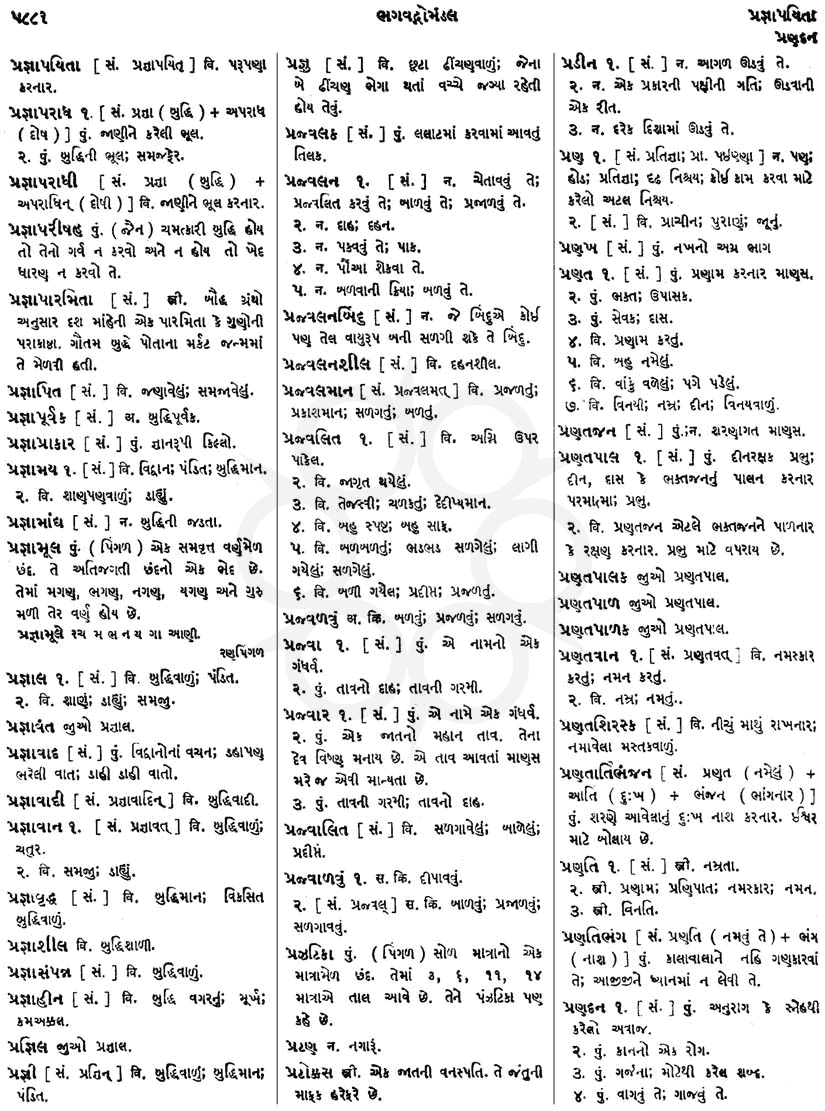 ૫૮૮૧
ભગવદ્ગોમંડલ
પ્રજ્ઞાપયિતા
પ્રણુદન
પ્રજ્ઞાપયિતા [ સં. પ્રજ્ઞાપયિતૃ ] વિ. પરૂપણા
કરનાર.
પ્રજ્ઞાપરાધ ૧. [ સં. પ્રજ્ઞા ( બુદ્ધિ ) + અપરાધ
( દોષ ) ] પું. જાણીને કરેલી ભૂલ.
૨. પું. બુદ્ધિની ભૂલ; સમજફેર.
પ્રજ્ઞાપરાધી [ સં. પ્રજ્ઞા ( બુદ્ધિ ) +
અપરાધિન્ ( દોષી ) ] વિ. જાણીને ભૂલ કરનાર.
પ્રજ્ઞાપરીષહ પું. ( જૈન ) ચમત્કારી બુદ્ધિ હોય
તો તેનો ગર્વ ન કરવો અને ન હોય તો ખેદ
ધારણ ન કરવો તે.
પ્રજ્ઞાપારમિતા [ સં. ] સ્ત્રી. બૌદ્ધ ગ્રંથો
અનુસાર દશ માંહેની એક પારમિતા કે ગુણોની
પરાકાષ્ઠા. ગૌતમ બુદ્ધે પોતાના મર્કટ જન્મમાં
તે મેળવી હતી.
પ્રજ્ઞાપિત [ સં. ] વિ. જણાવેલું; સમજાવેલું.
પ્રજ્ઞાપૂર્વક [ સં. ] અ. બુદ્ધિપૂર્વક.
પ્રજ્ઞાપ્રાકાર [ સં. ] પું. જ્ઞાનરૂપી કિલ્લો.
પ્રજ્ઞામય ૧. [ સં. ] વિ. વિદ્વાન; પંડિત; બુદ્ધિમાન.
૨. વિ. શાણપણવાળું; ડાહ્યું.
પ્રજ્ઞામાંદ્ય [ સં. ] ન. બુદ્ધિની જડતા.
પ્રજ્ઞામૂલ પું. ( પિંગળ ) એક સમવૃત્ત વર્ણમેળ
છંદ. તે અતિજગતી છંદનો એક ભેદ છે.
તેમાં મગણ, ભગણ, નગણ, યગણ અને ગુરુ
મળી તેર વર્ણ હોય છે.
પ્રજ્ઞામૂલે રચ મ ભ ન ય ગા આણી.
રણપિંગળ
પ્રજ્ઞાલ ૧. [ સં. ] વિ. બુદ્ધિવાળું; પંડિત.
૨. વિ. શાણું; ડાહ્યું; સમજુ.
પ્રજ્ઞાવંત જુઓ પ્રજ્ઞાલ.
પ્રજ્ઞાવાદ [ સં. ] પું. વિદ્વાનોનાં વચન; ડહાપણ
ભરેલી વાત; ડાહી ડાહી વાતો.
પ્રજ્ઞાવાદી [ સં. પ્રજ્ઞાવાદિન્ ] વિ. બુદ્ધિવાદી.
પ્રજ્ઞાવાન ૧. [ સં. પ્રજ્ઞાવત્ ] વિ. બુદ્ધિવાળું;
ચતુર.
૨. વિ. સમજુ; ડાહ્યું.
પ્રજ્ઞાવૃદ્ધ [ સં. ] વિ. બુદ્ધિમાન; વિકસિત
બુદ્ધિવાળું.
પ્રજ્ઞાશીલ વિ. બુદ્ધિશાળી.
પ્રજ્ઞાસંપન્ન [ સં. ] વિ. બુદ્ધિવાળું.
પ્રજ્ઞાહીન [ સં. ] વિ. બુદ્ધિ વગરનું; મૂર્ખ;
કમઅક્કલ.
પ્રજ્ઞિલ જુઓ પ્રજ્ઞાલ.
પ્રજ્ઞી [ સં. પ્રજ્ઞિન્ ] વિ. બુદ્ધિવાળું; બુદ્ધિમાન;
પંડિત.
પ્રજ્ઞુ [ સં. ] વિ. છૂટા ઢીંચણવાળું; જેના
બે ઢીંચણ ભેગા થતાં વચ્ચે જગ્યા રહેતી
હોય તેવું.
પ્રજ્વલક [ સં. ] પું. લલાટમાં કરવામાં આવતું
તિલક.
પ્રજ્વલન ૧. [ સં. ] ન. ચેતાવવું તે;
પ્રજ્વલિત કરવું તે; બાળવું તે; પ્રજાળવું તે.
૨. ન. દાહ; દહન.
૩. ન. પકવવું તે; પાક.
૪. ન. પૌંઆ શેકવા તે.
૫. ન. બળવાની ક્રિયા; બળવું તે.
પ્રજ્વલનબિંદુ [ સં. ] ન. જે બિંદુએ કોઈ
પણ તેલ વાયુરૂપ બની સળગી શકે તે બિંદુ.
પ્રજ્વલનશીલ [ સં. ] વિ. દહનશીલ.
પ્રજ્વલમાન [ સં. પ્રજ્વલમત્ ] વિ. પ્રજળતું;
પ્રકાશમાન; સળગતું; બળતું.
પ્રજ્વલિત ૧. [ સં. ] વિ. અગ્નિ ઉપર
પાકેલ.
૨. વિ. જાગૃત થયેલું.
૩. વિ. તેજસ્વી; ચળકતું; દેદીપ્યમાન.
૪. વિ. બહુ સ્પષ્ટ; બહુ સાફ.
૫. વિ. બળબળતું; ભડભડ સળગેલું; લાગી
ગયેલું; સળગેલું.
૬. વિ. બળી ગયેલ; પ્રદીપ્ત; પ્રજળતું.
પ્રજ્વળવું અ. ક્રિ. બળવું; પ્રજળવું; સળગવું.
પ્રજ્વા ૧. [ સં. ] પું. એ નામનો એક
ગંધર્વ.
૨. પું. તાવનો દાહ; તાવની ગરમી.
પ્રજ્વાર ૧. [ સં. ] પું. એ નામે એક ગંધર્વ.
૨. પું. એક જાતનો મહાન તાવ. તેના
દેવ વિષ્ણુ મનાય છે. એ તાવ આવતાં માણસ
મરે જ એવી માન્યતા છે.
૩. પું. તાવની ગરમી; તાવનો દાહ.
પ્રજ્વાલિત [ સં. ] વિ. સળગાવેલું; બાળેલું;
પ્રદીપ્ત.
પ્રજ્વાળવું ૧. સ. ક્રિ. દીપાવવું.
૨. [ સં. પ્રજ્વલ્ ] સ. ક્રિ. બાળવું; પ્રજાળવું;
સળગાવવું.
પ્રઝટિકા પું. ( પિંગળ ) સોળ માત્રાનો એક
માત્રામેળ છંદ. તેમાં ૩, ૬, ૧૧, ૧૪
માત્રાએ તાલ આવે છે. તેને પંઝટિકા પણ
કહે છે.
પ્રટણ ન. નગારું.
પ્રટોક્કસ સ્ત્રી. એક જાતની વનસ્પતિ. તે જંતુની
માફક હરેફરે છે.
પ્રડીન ૧. [ સં. ] ન. આગળ ઊડવું તે.
૨. ન. એક પ્રકારની પક્ષીની ગતિ; ઊડવાની
એક રીત.
૩. ન. દરેક દિશામાં ઊડવું તે.
પ્રણ ૧. [ સં. પ્રતિજ્ઞા; પ્રા. પઇણ્ણા ] ન. પણ;
હોડ; પ્રતિજ્ઞા; દૃઢ નિશ્ચય; કોઈ કામ કરવા માટે
કરેલો અટલ નિશ્ચય.
૨. [ સં. ] વિ. પ્રાચીન; પુરાણું; જૂનું.
પ્રણખ [ સં. ] પું. નખનો અગ્ર ભાગ
પ્રણત ૧. [ સં. ] પું. પ્રણામ કરનાર માણસ.
૨. પું. ભક્ત; ઉપાસક.
૩. પું. સેવક; દાસ.
૪. વિ. પ્રણામ કરતું.
૫. વિ. બહુ નમેલું.
૬. વિ. વાંકું વળેલું; પગે પડેલું.
૭. વિ. વિનયી; નમ્ર; દીન; વિનયવાળું.
પ્રણતજન [ સં. ] પું.;ન. શરણાગત માણસ.
પ્રણતપાલ ૧. [ સં. ] પું. દીનરક્ષક પ્રભુ;
દીન, દાસ કે ભક્તજનનું પાલન કરનાર
પરમાત્મા; પ્રભુ.
૨. વિ. પ્રણતજન એટલે ભક્તજનને પાળનાર
કે રક્ષણ કરનાર. પ્રભુ માટે વપરાય છે.
પ્રણતપાલક જુઓ પ્રણતપાલ.
પ્રણતપાળ જુઓ પ્રણતપાલ.
પ્રણતપાળક જુઓ પ્રણતપાલ.
પ્રણતવાન ૧. [ સં. પ્રણતવત્ ] વિ. નમસ્કાર
કરતું; નમન કરતું.
૨. વિ. નમ્ર; નમતું.
પ્રણતશિરસ્ક [ સં. ] વિ. નીચું માથું રાખનાર;
નમાવેલા મસ્તકવાળું.
પ્રણતાતિભંજન [ સં. પ્રણત ( નમેલું ) +
આતિ ( દુઃખ ) + ભંજન ( ભાંગનાર ) ]
પું. શરણે આવેલાનું દુઃખ નાશ કરનાર. ઈશ્વર
માટે બોલાય છે.
પ્રણતિ ૧. [ સં. ] સ્ત્રી. નમ્રતા.
૨. સ્ત્રી. પ્રણામ; પ્રણિપાત; નમસ્કાર; નમન.
૩. સ્ત્રી. વિનતિ.
પ્રણતિભંગ [ સં. પ્રણતિ ( નમવું તે ) + ભંગ
( નાશ ) ] પું. કાલાવાલાને નહિ ગણકારવાં
તે; આજીજીને ધ્યાનમાં ન લેવી તે.
પ્રણદન ૧. [ સં. ] પું. અનુરાગ કે સ્નેહથી
કરેલો અવાજ.
૨. પું. કાનનો એક રોગ.
૩. પું. ગર્જના; મોટેથી કરેલ શબ્દ.
૪. પું. વાગવું તે; ગાજવું તે.